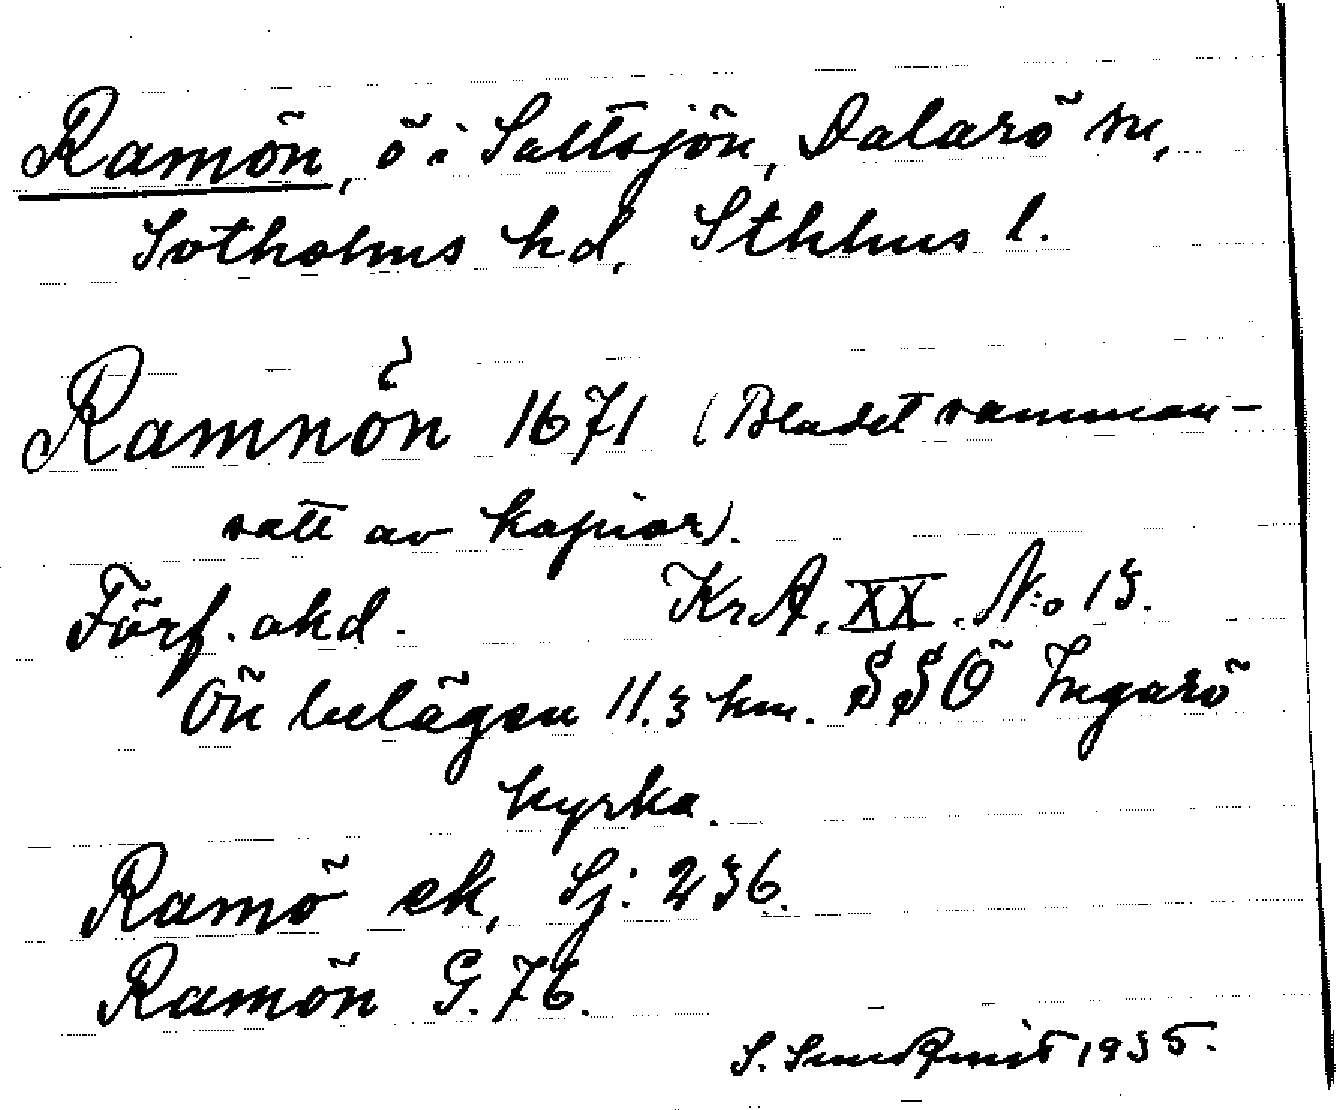 Ramön, ö i Saltsjön, Dalarö sn,
Sotholms hd, Sthlms l.
Ramnön 1671 (Bladet samman-
satt av kopior).
Förf. okd. Kr.A. XX. N:o 13.
Ön belägen 11.3 km. SSÖ Ingarö
kyrka.
Ramö ek, Sj: 236.
Ramön G. 76.
S. Sundqvist 1935.